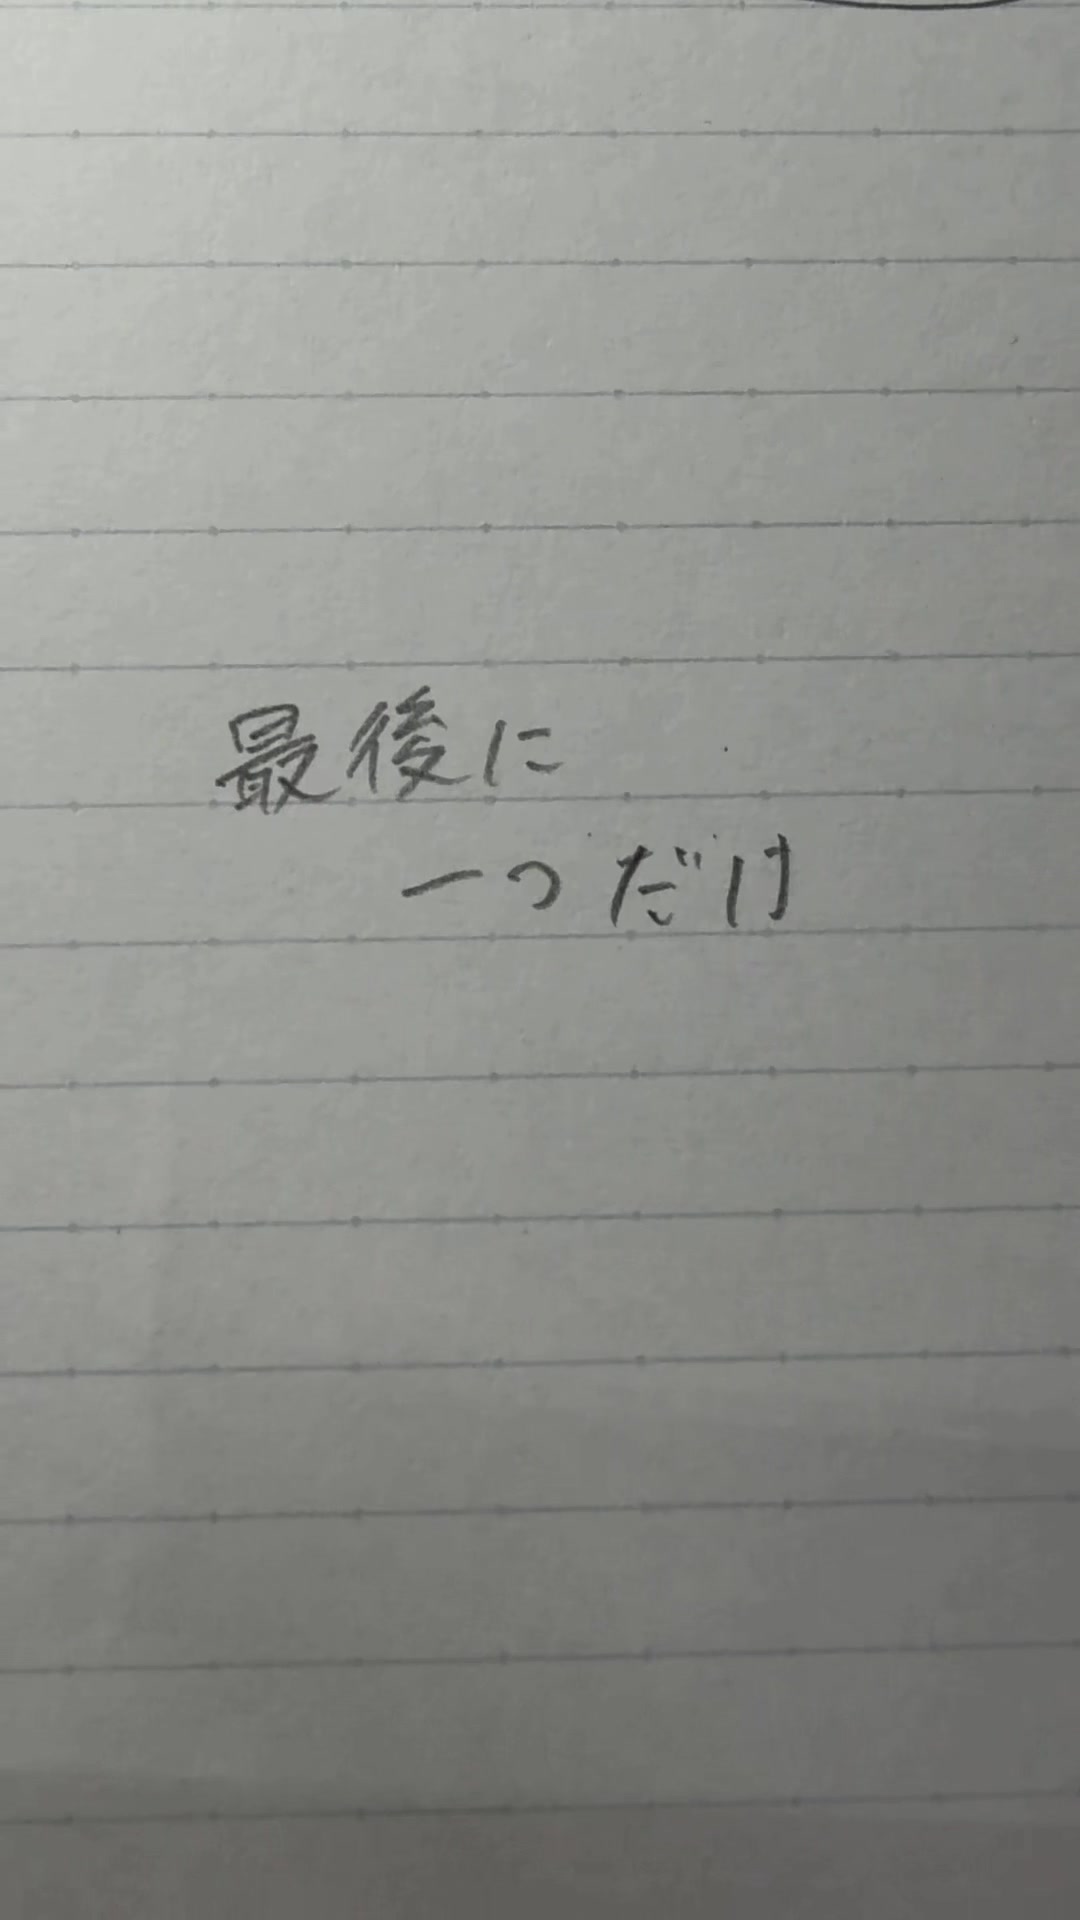 最後に
一つだけ